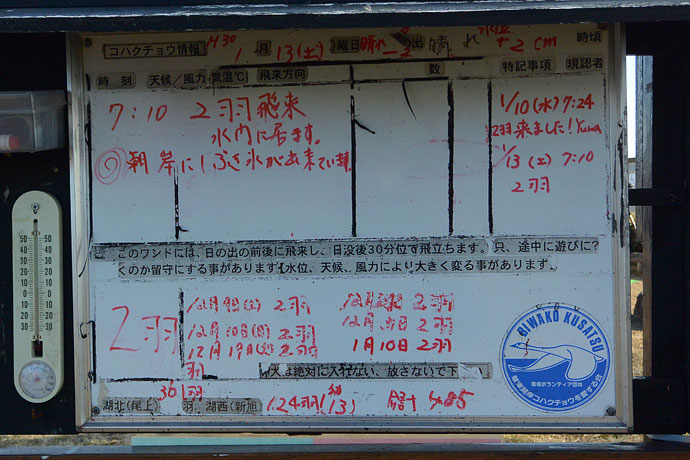 コハクチョウ情報 H30 1月 13(土)曜日 晴れ 晴れ 水位 +2cm 時頃
時 刻 天候/風力 気温℃ 飛来方向 数 特記事項 現認者
7:10 2羽飛来
水内に居ます。
朝岸にしぶき氷が出来ています
1/10(水)7:24
2羽来ました!
1/13(土)7:10
2羽
このワンドには、日の出の前後に飛来し、日没後30分位で飛立ちます。只、途中に遊びに?
くのか留守にする事があります 水位、天候、風力により大きく変る事があります。
2羽
12月9日(土) 2羽
12月10日(日) 2羽
12月17日(日) 2羽
羽
12月 2羽
12月 2羽
1月10日 2羽
犬は絶対に入れない、放さないで下
湖北(尾上) 361羽 羽、湖西(新旭) 124羽(13) 合計 485
BIWAKO KUSATSU
環境ボランティア団体
草津湖岸コハクチョウを愛する会
50 50
40 40
30 30
20 20
10 10
0 0
10 10
20 20
30 30